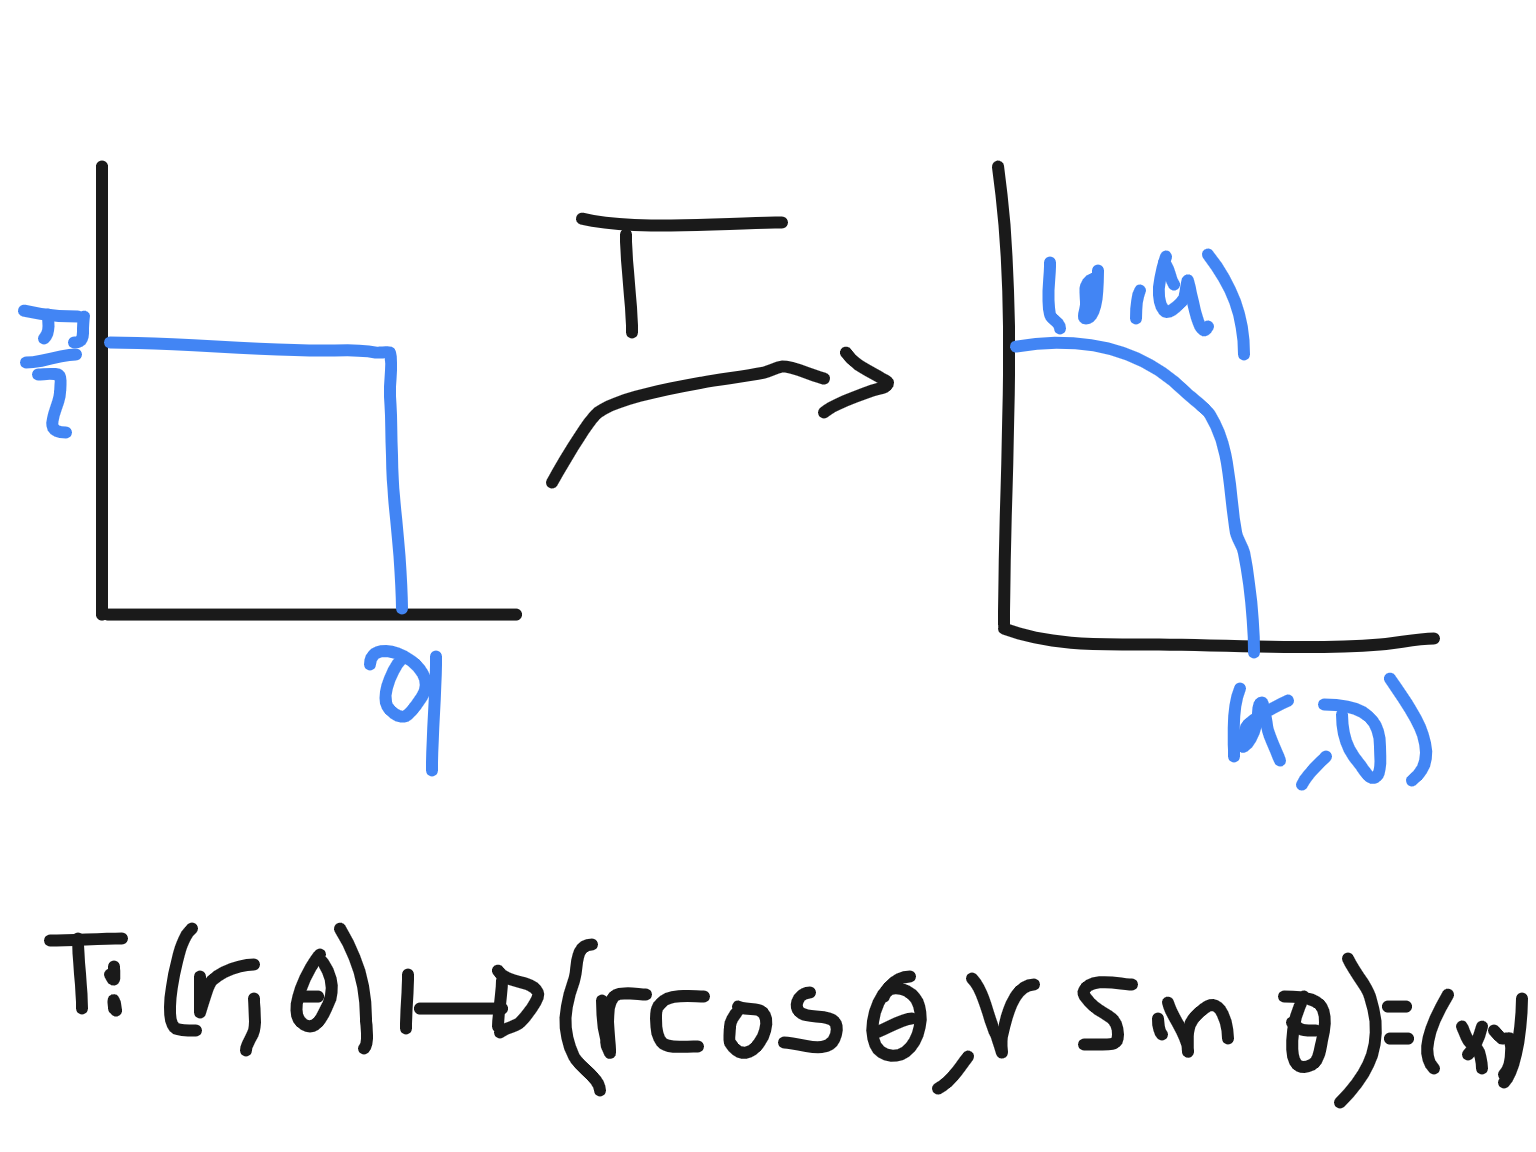 T
π/2
(0, a)
a
(a, 0)
T: (r, θ) ↦ (r cos θ, r sin θ) = (x, y)